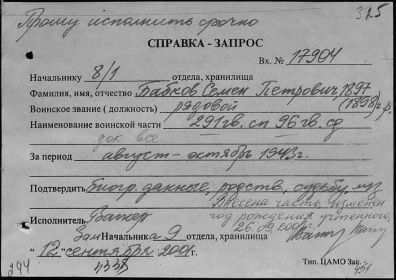 Прошу исполнить срочно
315
СПРАВКА - ЗАПРОС
Вх. № 17904
Начальнику 8/1 отдела, хранилища
Фамилия, имя, отчество Бабков Семен Петрович, 1897
(1898) г.р.
Воинское звание (должность) рядовой
Наименование воинской части 291 гв. сп 96 гв. сд
док все
За период август - октябрь 1943 г.
Подтвердить биогр. данные, родств, судьбу,
Внесена часть, изменен
год рождения учтенного,
26.09.2001
Исполнитель
Зам Начальника 9 отдела, хранилища
"12" сентября 2001
Тип. ЦАМО Зак.